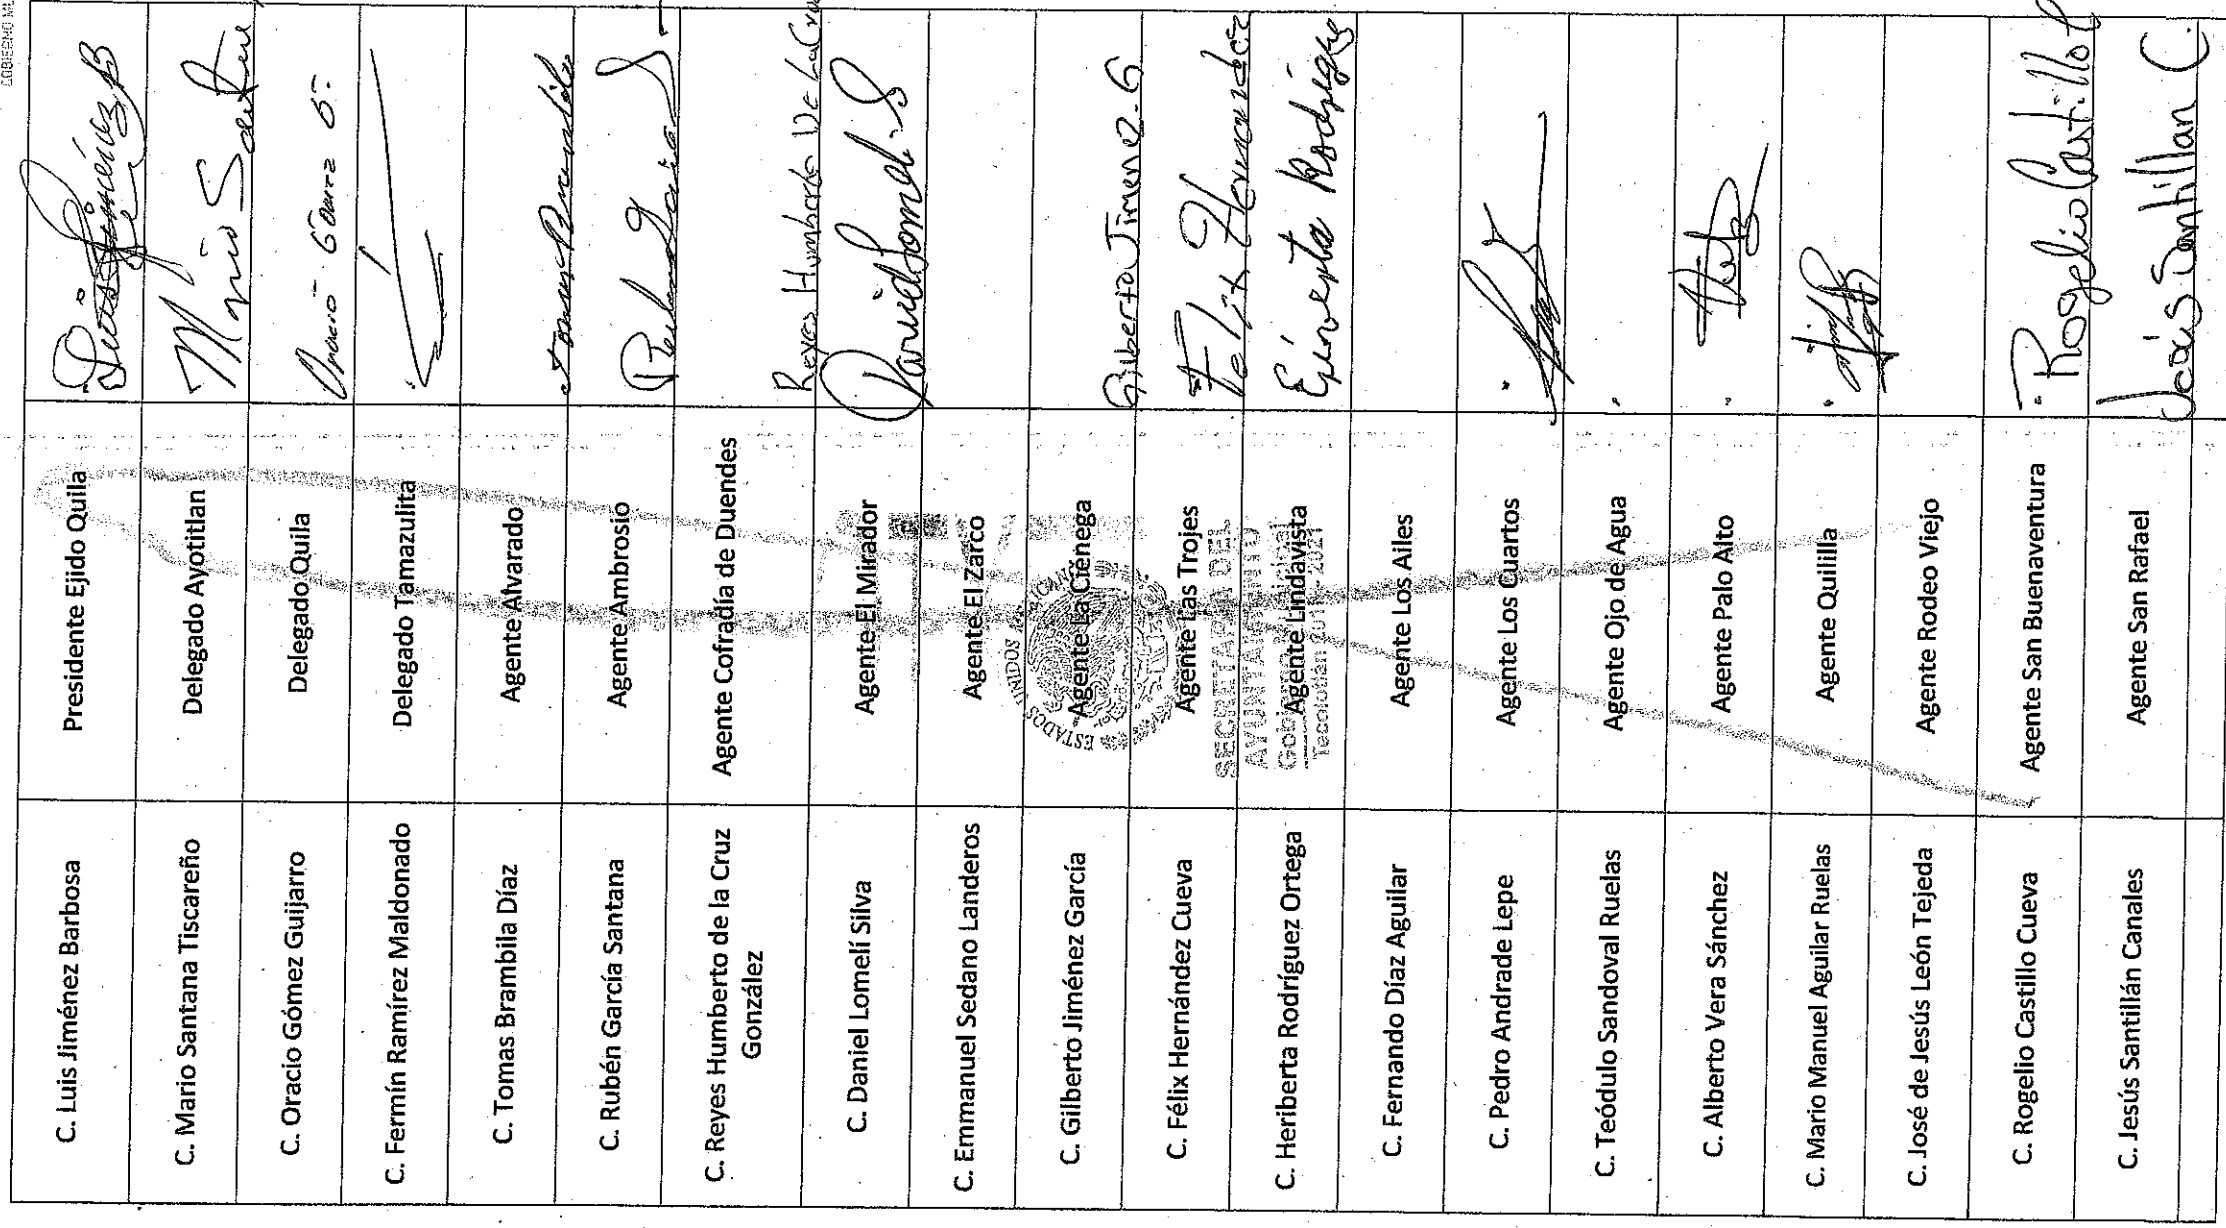 C. Luis Jiménez Barbosa Presidente Ejido Quila
C. Mario Santana Tiscareño Delegado Ayotitlan Mario Santana
C. Oracio Gómez Guijarro Delegado Quila
C. Fermín Ramírez Maldonado Delegado Tamazulita
C. Tomas Brambila Díaz Agente Alvarado
C. Rubén García Santana Agente Ambrosio
C. Reyes Humberto de la Cruz Agente Cofradía de Duendes Reyes Humberto De La Cruz
González
C. Daniel Lomelí Silva Agente El Mirador Daniel Lomeli. S
C. Emmanuel Sedano Landeros Agente El Zarco
C. Gilberto Jiménez García Agente La Ciénega Gilberto Jimenez. G
C. Félix Hernández Cueva Agente Las Trojes Felix Hernandez
C. Heriberta Rodríguez Ortega Agente Lindavista
C. Fernando Díaz Aguilar Agente Los Ailes
C. Pedro Andrade Lepe Agente Los Cuartos
C. Teódulo Sandoval Ruelas Agente Ojo de Agua
C. Alberto Vera Sánchez Agente Palo Alto
C. Mario Manuel Aguilar Ruelas Agente Quililla
C. José de Jesús León Tejeda Agente Rodeo Viejo
C. Rogelio Castillo Cueva Agente San Buenaventura Rogelio Castillo
C. Jesús Santillán Canales Agente San Rafael Jesús Santillan C.
ESTADOS UNIDOS
SECRETARIA DEL
AYUNTAMIENTO
Gobierno Municipal